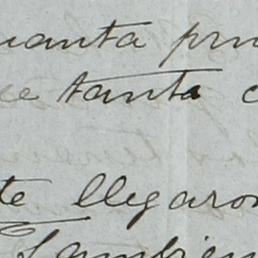 uanta pru
ce tanta c
te llegaron
Tambien